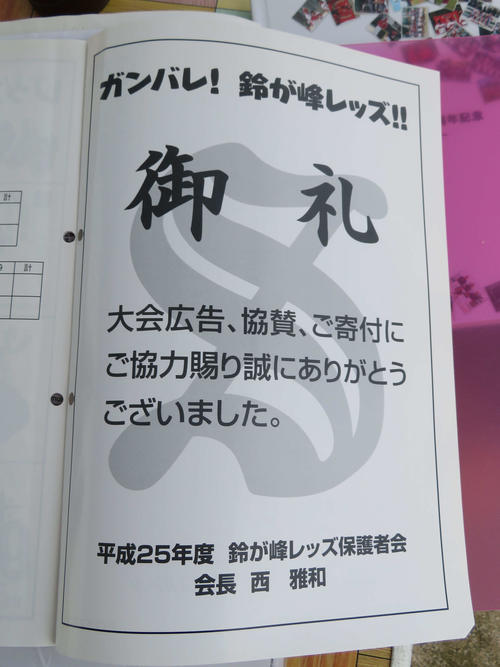 ガンバレ! 鈴が峰レッズ!!
御 礼
大会広告、協賛、ご寄付に
ご協力賜り誠にありがとう
ございました。
平成25年度 鈴が峰レッズ保護者会
会長 西 雅和
計
9 計
周年記念